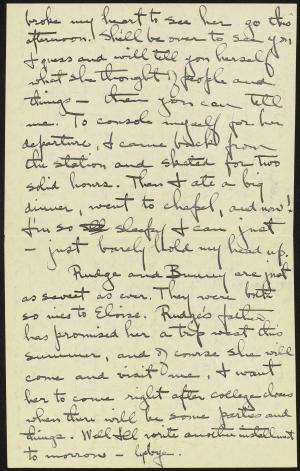 broke my heart to see her go this
afternoon. She'll be over to see you
I guess and will tell you herself
what she thought of people and
things — then you can tell
me. To console myself for her
departure, I came back from
the station and skated for two
solid hours. Then I ate a big
dinner, went to chapel, and now!
I'm so sleepy I can just
— just barely hold my head up.
Rudge and Bunny are just
as sweet as ever. They were both
so nice to Eloise. Rudge's father
has promised her a trip west this
summer, and of course she will
come and visit me, I want
her to come right after college closes
when there will be some parties and
things. Well I'll write another installment
to morrow — G'bye.